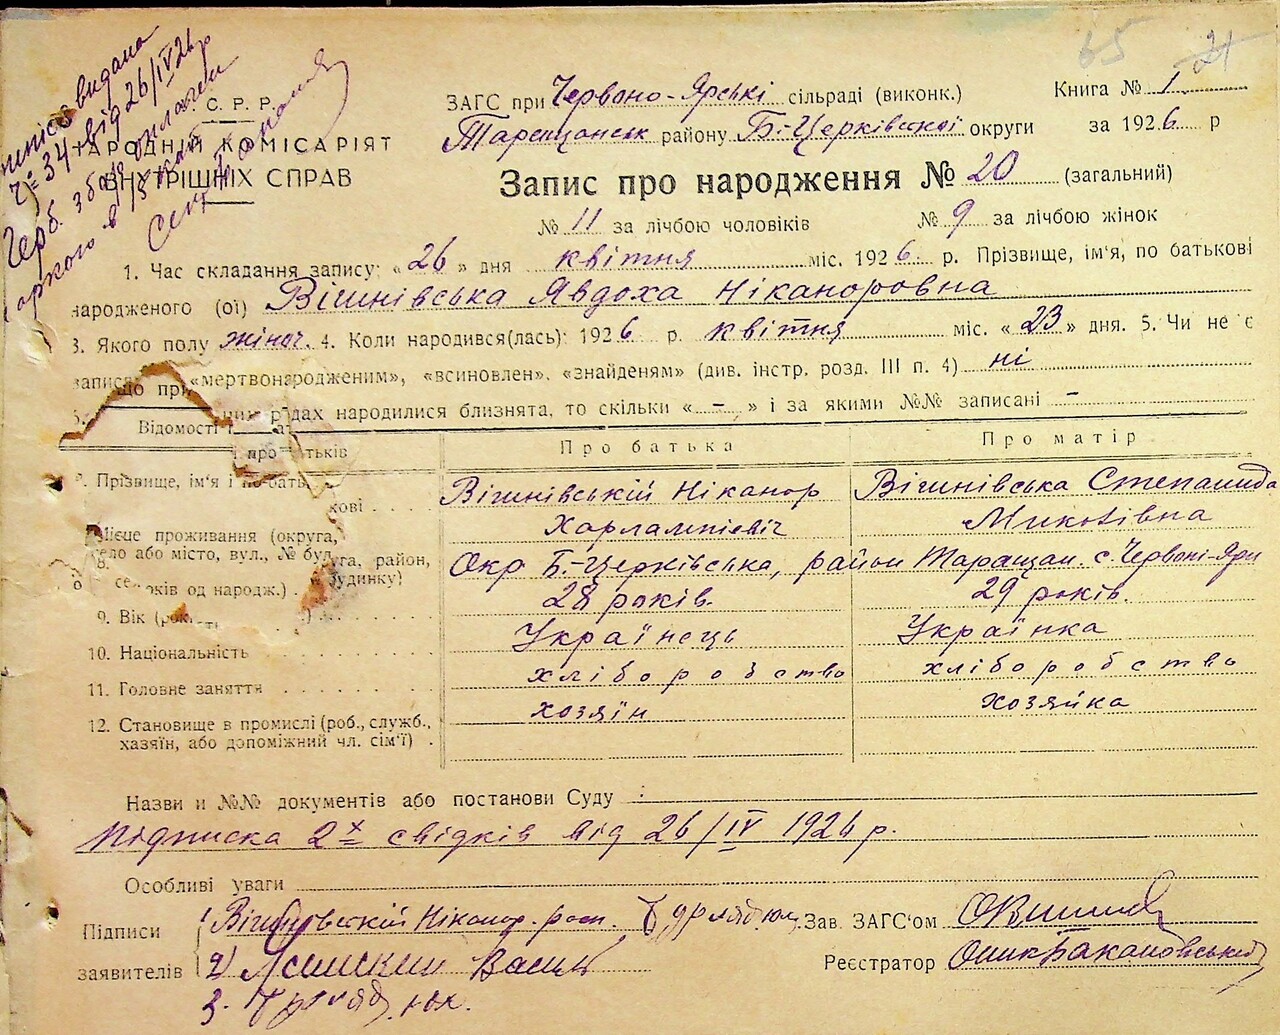 65 21
видана
№ 34 від 26/IV 26 р
Герб. збір оплачен
С. Р. Р.
НАРОДНІЙ КОМІСАРІЯТ
ВНУТРІШНІХ СПРАВ
ЗАГС при Червоно-Ярські сільраді (виконк.) Книга № 1
Таращанськ району Б-Церківської округи за 1926 р
Запис про народження № 20 (загальний)
№ 11 за лічбою чоловіків № 9 за лічбою жінок
1. Час складання запису: «26» дня квітня міс. 1926 р. Прізвище, ім'я, по батькові
народженого (ої) Вішнівська Явдоха Ніканоровна
3. Якого полу жіноч. 4. Коли народився(лась): 1926 р. квітня міс. «23» дня. 5. Чи не є
записа «мертвонародженим», «всиновлен», «знайденям» (див. інстр. розд. III п. 4) ні
що при родах народилися близнята, то скільки « – » і за якими №№ записані –
Відомості про батьків Про батька Про матір
7. Прізвище, ім'я і по батькові Вішнівській Ніканор Вішнівська Степанида
Харлампієвіч Миколівна
8. Місце проживання (округа, район, село або місто, вул., № будинку) Окр Б-Церківська, район Таращан. с. Червоні-Яри
9. Вік (років од народж.) 28 років. 29 років.
10. Національність Українець Українка
11. Головне заняття хліборобство хліборобство
12. Становище в промислі (роб., служб., хозяїн хозяйка
хазяїн, або допоміжний чл. сім'ї)
Назви и №№ документів або постанови Суду :
Підписка 2х свідків від 26/IV 1926 р.
Особливі уваги
Підписи 1 Вішнівській Ніканор Зав. ЗАГС'ом
заявителів 2) Реєстратор
3.